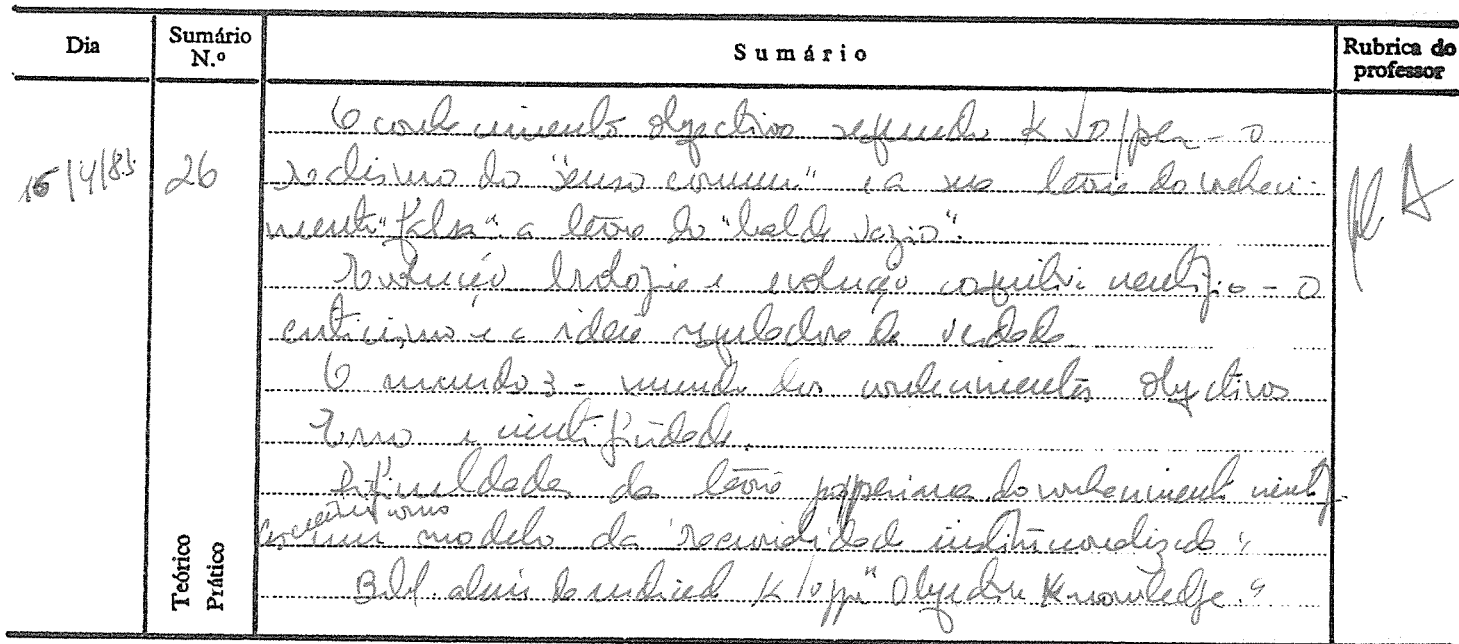 Dia
Sumário N.º
Sumário
Rubrica do professor
15/4/83
26
O conhecimento objectivo segundo K Popper - o
realismo do "senso comum" e a sua teoria do conheci-
mento "falsa": a teoria do "balde vazio".
Evolução biológica e evolução cognitiva científica - o
criticismo e a ideia reguladora de verdade
O mundo 3 - mundo dos conhecimentos objectivos
Erro e cientificidade.
Dificuldades da teoria popperiana do conhecimento cient.
como um modelo da "racionalidade institucionalizada"
Bibl. além da indicada K Popper "Objective Knowledge."
Teórico
Prático